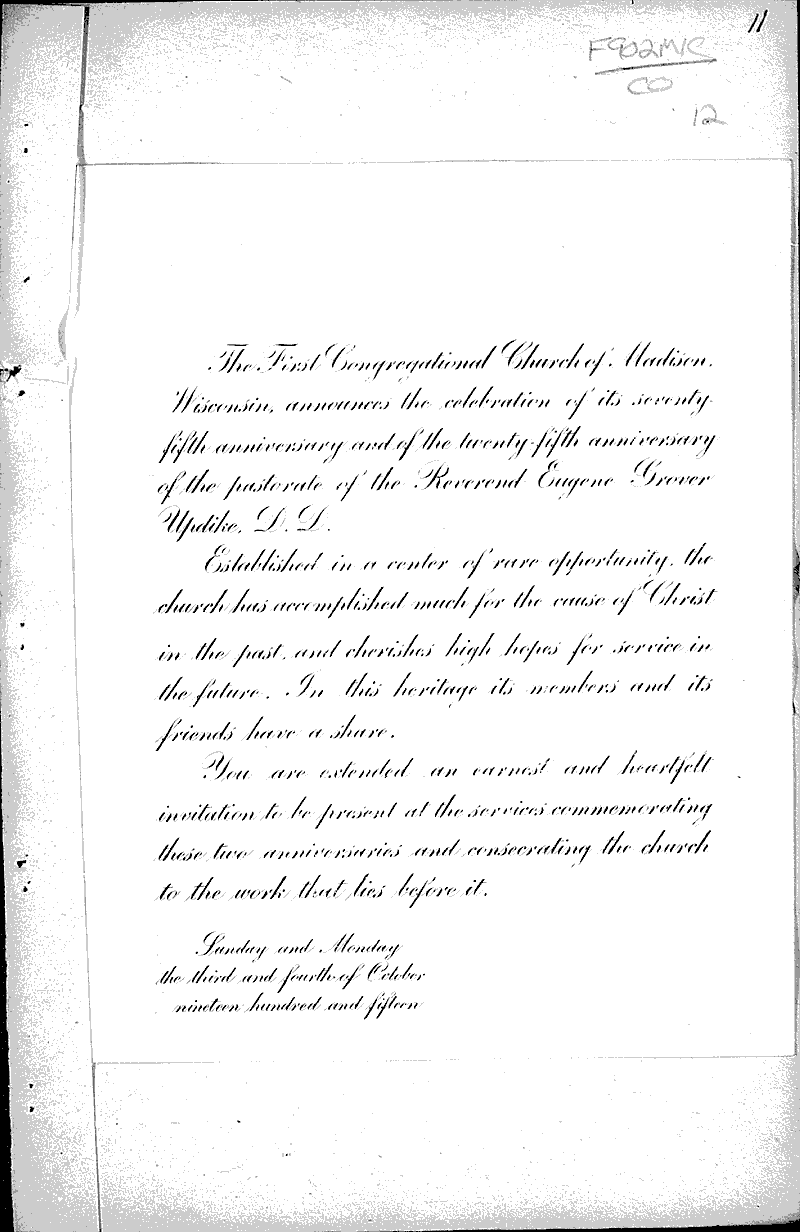 11
F902MIC
CO
12
The First Congregational Church of Madison,
Wisconsin, announces the celebration of its seventy-
fifth anniversary and of the twenty-fifth anniversary
of the pastorate of the Reverend Eugene Grover
Updike, D. D.
Established in a center of rare opportunity, the
church has accomplished much for the cause of Christ
in the past, and cherishes high hopes for service in
the future. In this heritage its members and its
friends have a share.
You are extended an earnest and heartfelt
invitation to be present at the services commemorating
these two anniversaries and consecrating the church
to the work that lies before it.
Sunday and Monday
the third and fourth of October
nineteen hundred and fifteen